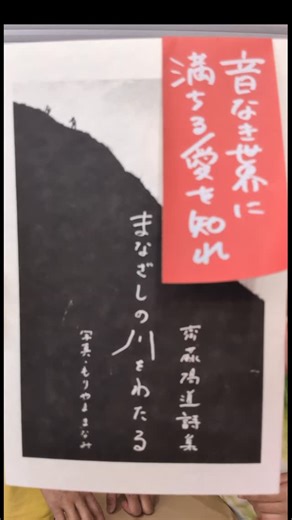 音なき世界に
満ちる愛を知れ
まなざしの川をわたる
齋藤陽道詩集
写真・もりやままなみ